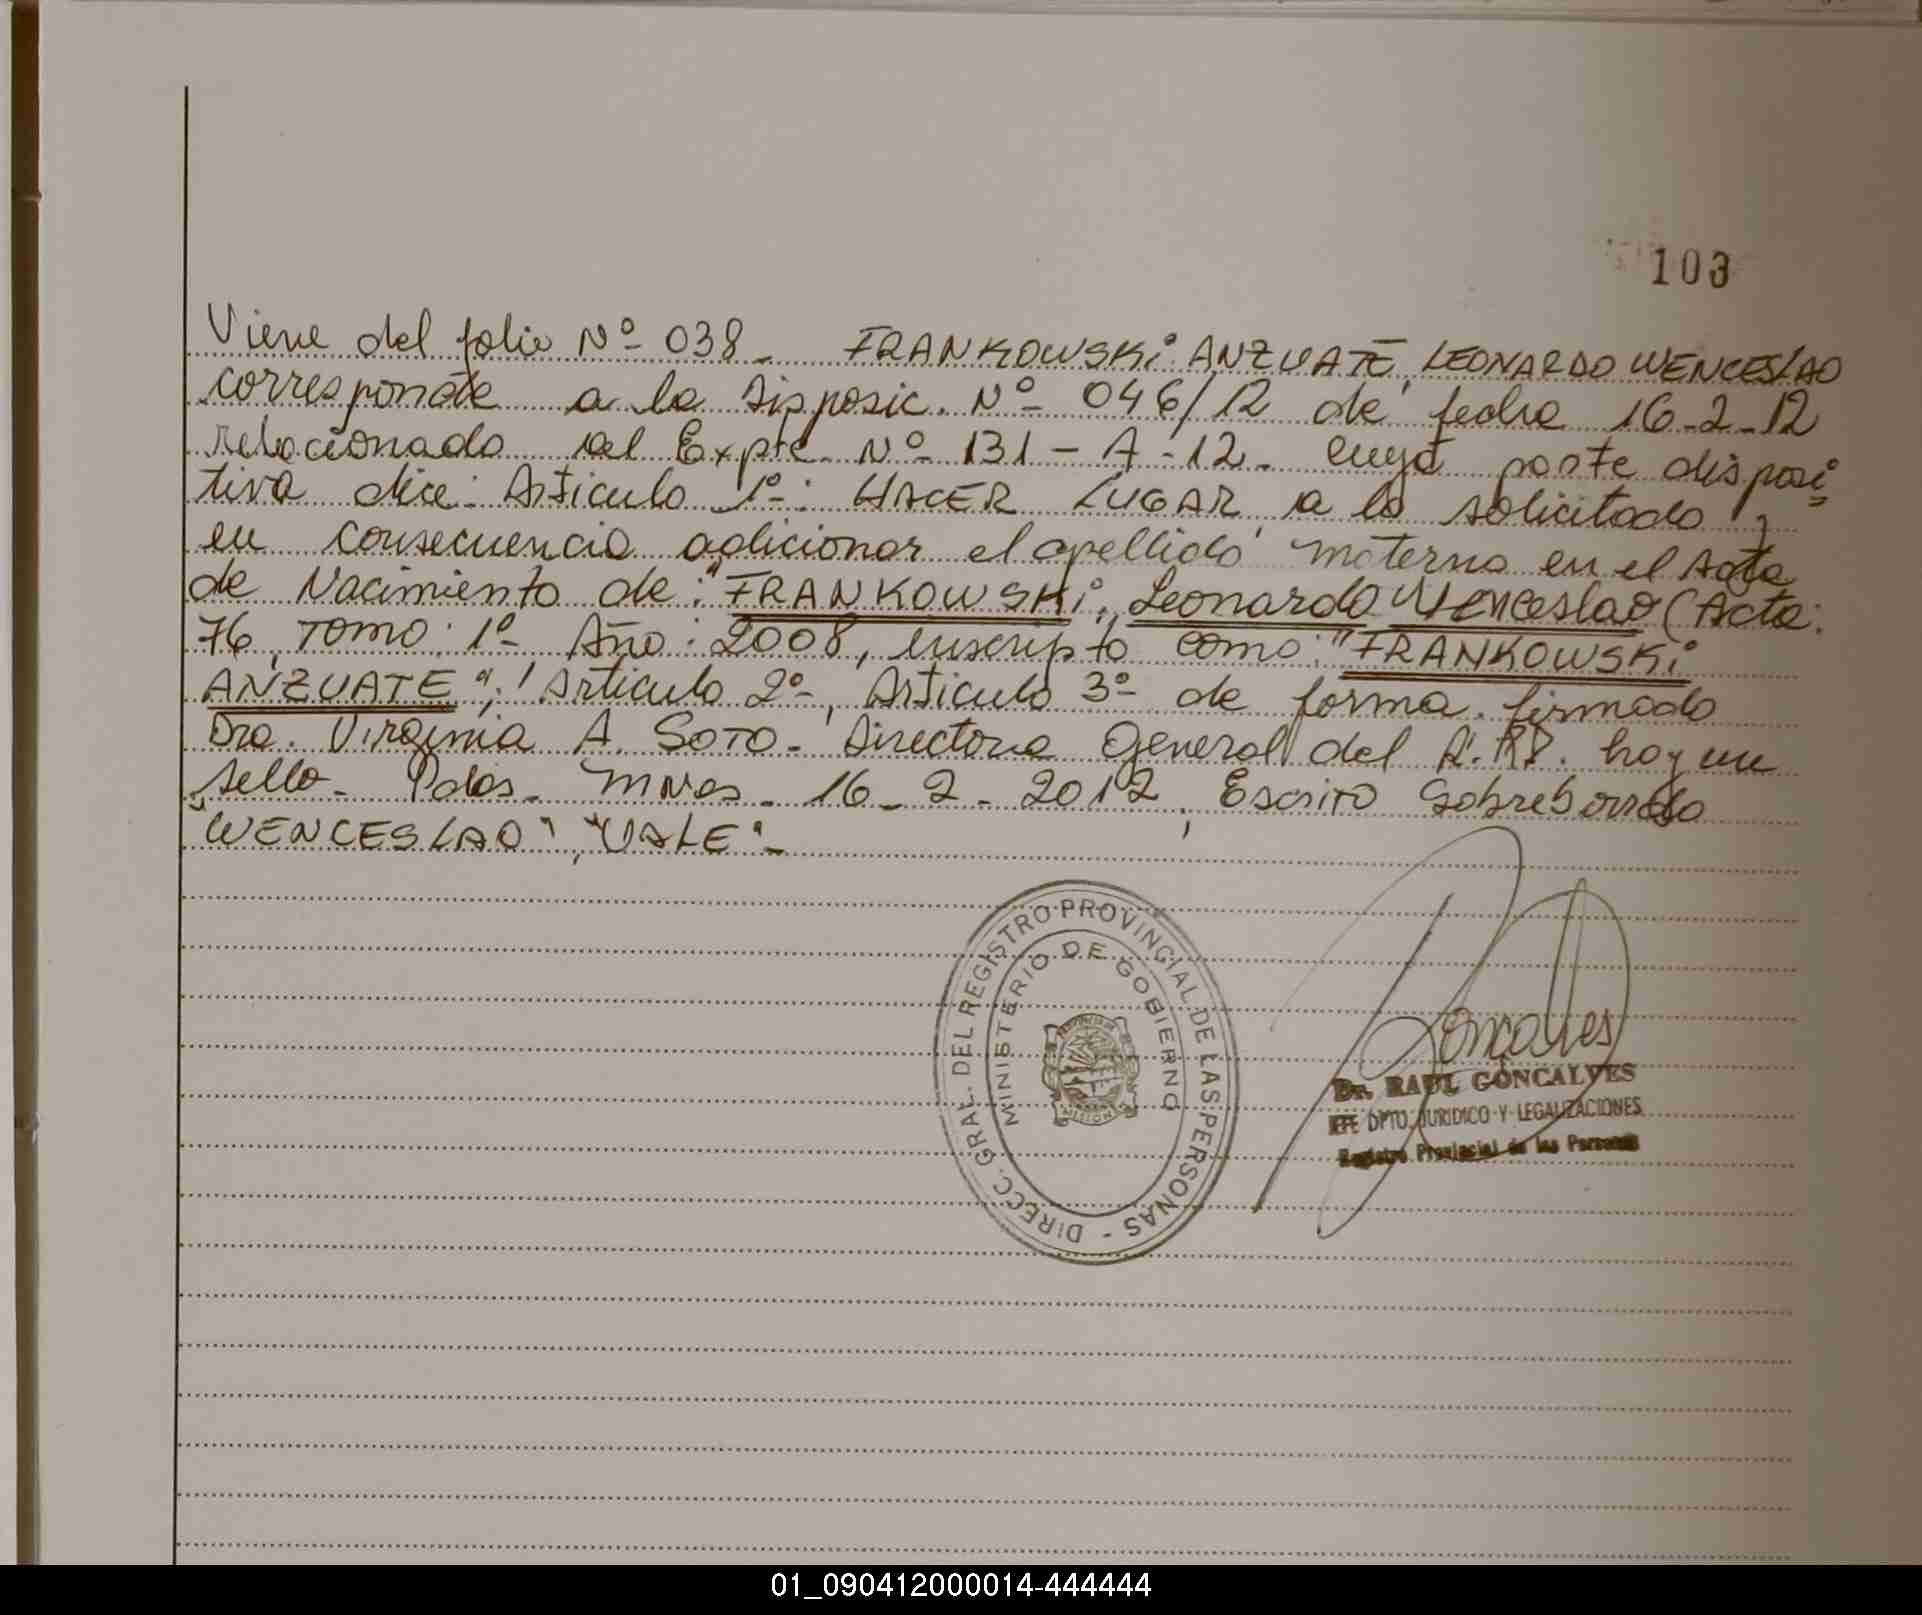 103
Viene del folio Nº 038 - FRANKOWSKI ANZUATE, LEONARDO WENCESLAO
corresponde a la Disposic. Nº 046/12 de fecha 16-2-12
relacionado al Expte. Nº 131-A-12- cuya parte disposi
tiva dice: Articulo 1º: HACER LUGAR a lo solicitado y
en consecuencia adicionar el apellido materno en el Acta
de Nacimiento de: "FRANKOWSKI, Leonardo Wenceslao (Acta:
76, TOMO: 1º Año: 2008, inscripto como: "FRANKOWSKI
ANZUATE"; Articulo 2º, Articulo 3º de forma. firmado
Dra. Virginia A. SOTO - Directora General del R.P.P. hay un
sello - Pdas. Mnes. 16-2-2012. Escrito Sobreborrado
"WENCESLAO", "VALE"-
DIRECC. GRAL. DEL REGISTRO PROVINCIAL DE LAS PERSONAS -
MINISTERIO DE GOBIERNO
MISIONES
Goncalves
Dr. RAUL GONCALVES
JEFE DPTO. JURIDICO Y LEGALIZACIONES
Registro Provincial de las Personas
01_090412000014-444444